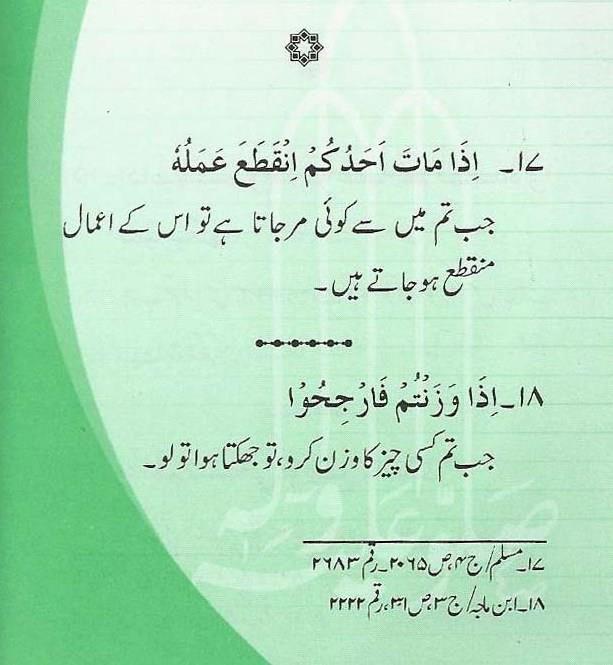 ۱۷۔ اِذَا مَاتَ اَحَدُكُمْ اِنْقَطَعَ عَمَلُهٗ
جب تم میں سے کوئی مر جاتا ہے تو اس کے اعمال
منقطع ہو جاتے ہیں۔
۱۸۔ اِذَا وَزَنْتُمْ فَارْجِحُوْا
جب تم کسی چیز کا وزن کرو، تو جھکتا ہوا تولو۔
۱۷۔ مسلم/ ج ۴، ص ۲۰۶۵۔ رقم ۲۶۸۳
۱۸۔ ابن ماجہ/ ج ۳، ص ۳۱، رقم ۲۲۲۲